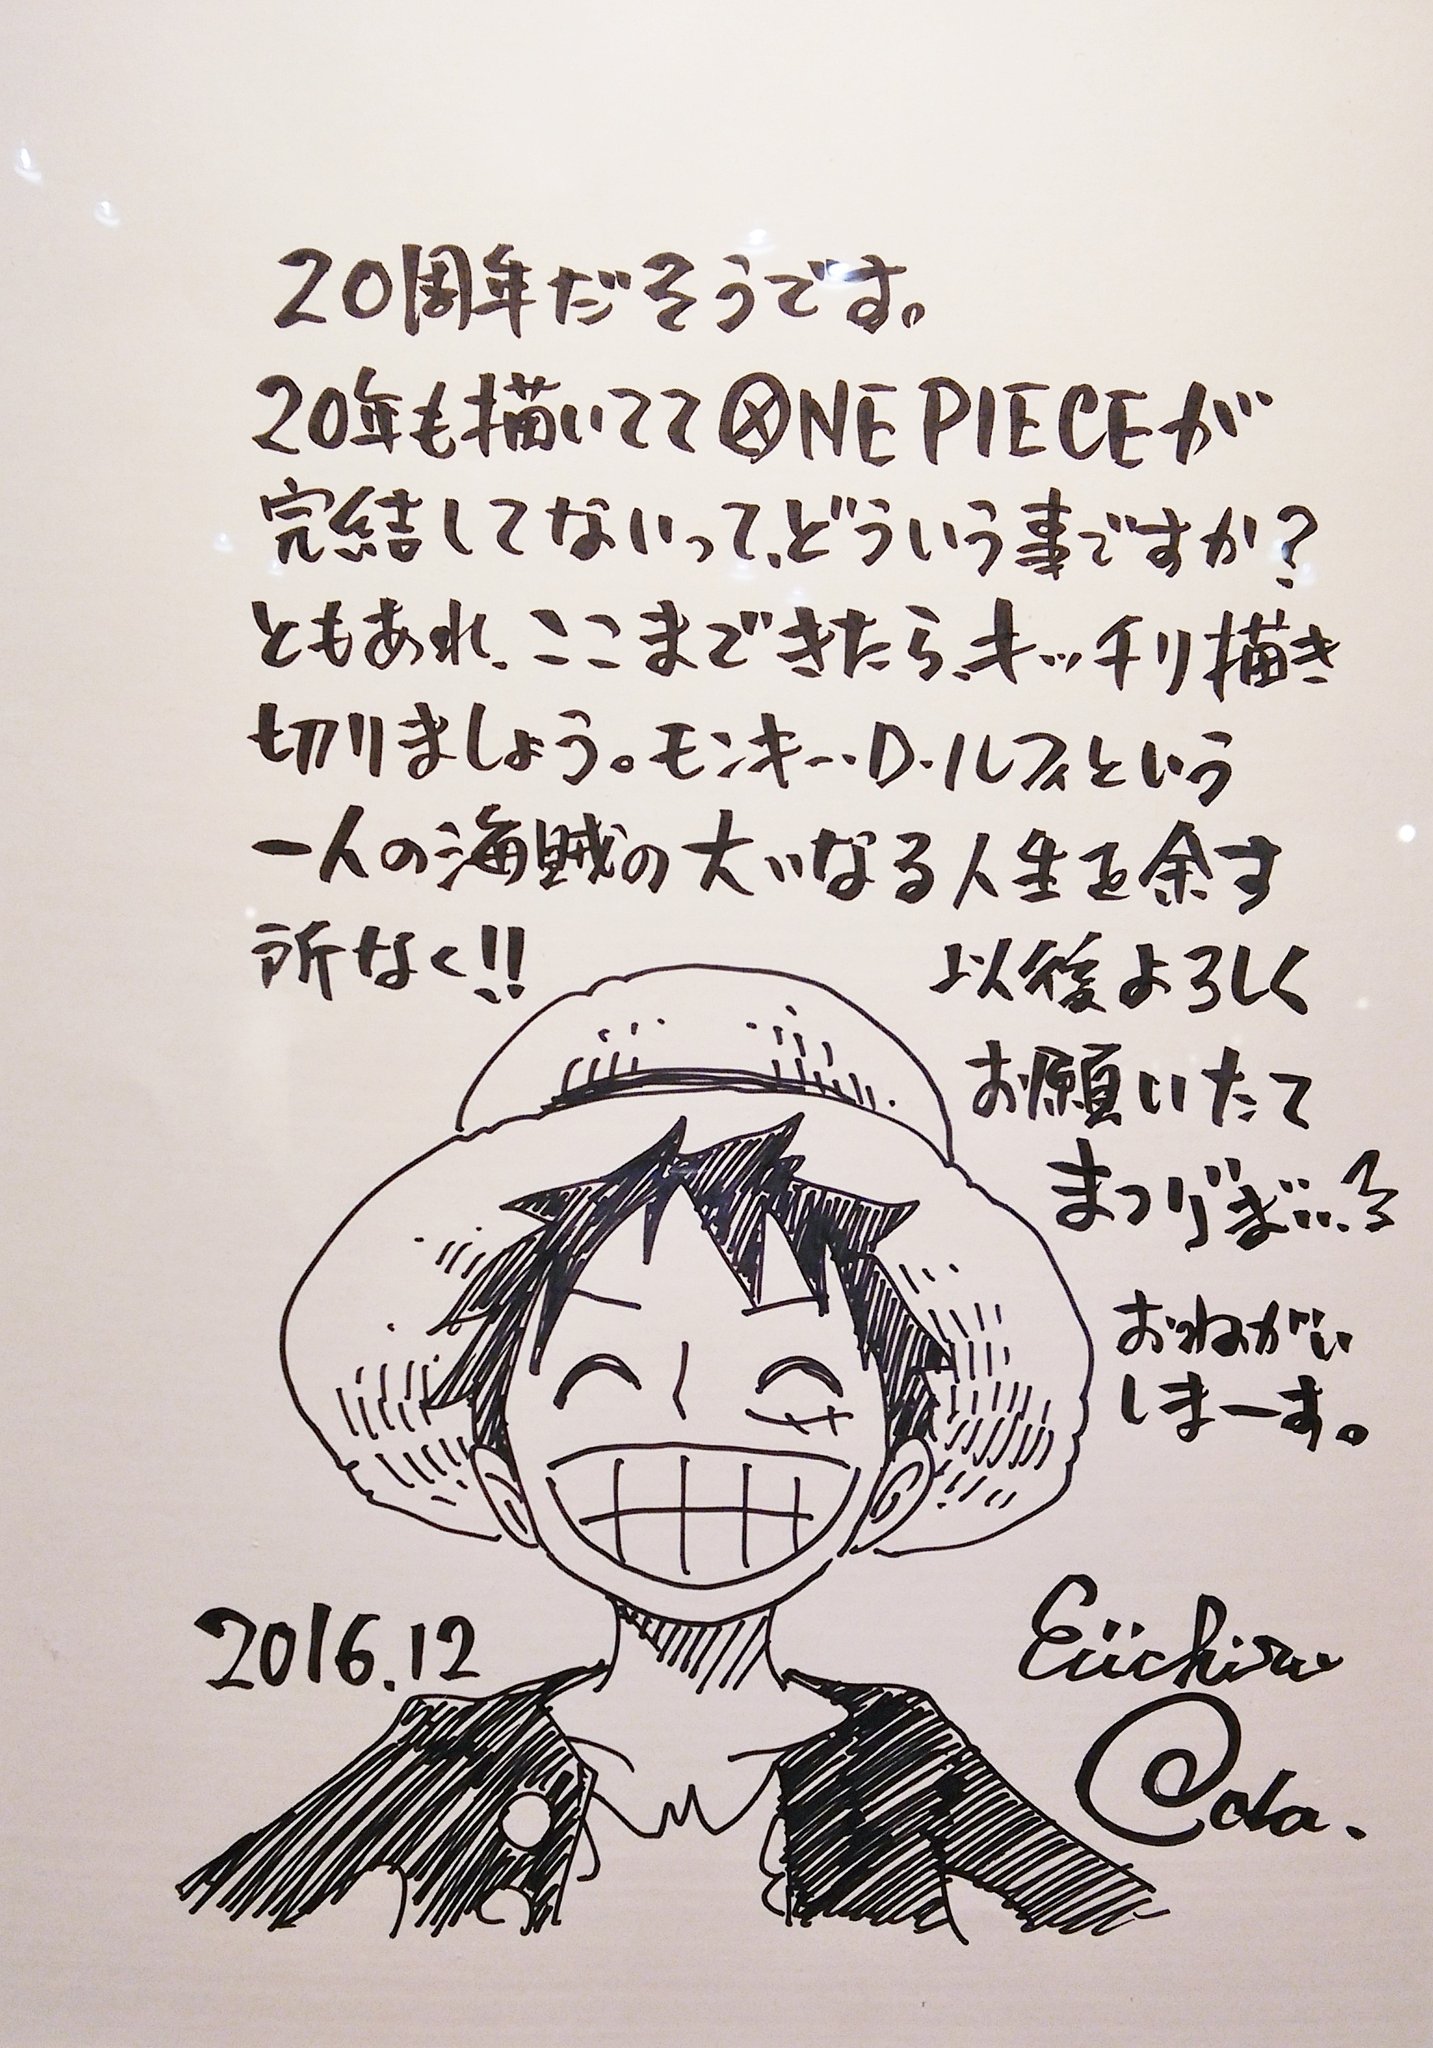 20周年だそうです。
20年も描いててONE PIECEが
完結してないって、どういう事ですか?
ともあれ、ここまできたら、キッチリ描き
切りましょう。モンキー・D・ルフィという
一人の海賊の大いなる人生を余す
所なく!!
以後よろしく
お願いたて
まつりまい.ろ
おねがい
しまーす。
2016.12
Eiichiro
Oda.